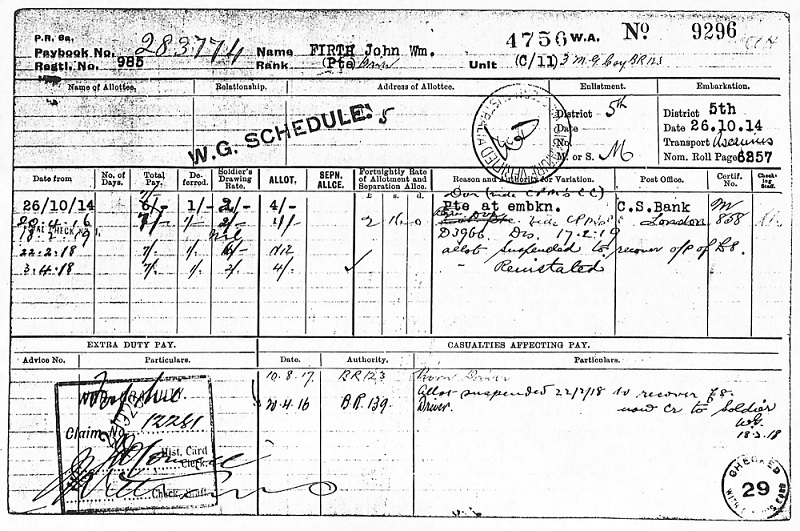 P.R. Ga.
Paybook No. 283774
Regtl. No. 985
Name FIRTH John Wm.
Rank (Pte)
4756 W.A. No 9296
Unit (C/11) 3 M G Coy BR123
Name of Allottee. Relationship. Address of Allottee. Enlistment. Embarkation.
W.G. SCHEDULE: 5
District 5th
Date
No.
M. or S. M
District 5th
Date 26.10.14
Transport Ascanius
Nom. Roll Page 6257
Date from No. of Days. Total Pay. Deferred. Soldier's Drawing Rate. ALLOT. SEPN. ALLCE. Fortnightly Rate of Allotment and Separation Allce. Reason and Authority for Variation. Post Office. Certif. No. Checking Staff.
£ s. d.
26/10/14 6/- 1/- 2/- 4/- Pte at embkn. C.S.Bank M
20.4.16 7/- 1/- 2/- 4/- 2 16 0 London 868
D3966 Dis. 17.2.19
22.2.18 7/- 1/- 6/- Nil allot suspended to recover o/p of £8.
3.4.18 7/- 1/- 2/- 4/- Reinstated
EXTRA DUTY PAY. CASUALTIES AFFECTING PAY.
Advice No. Particulars. Date. Authority. Particulars.
10.8.17. BR123 Driver
Allot suspended 22/2/18 to recover £8.
20.4.16 BR.139. Driver. now Cr to Soldier
W.G.
18.3.18
WAR GRATUITY.
Claim No. 12281
Hist. Card
Clerk.
Check. Staff.
CHECKED
29